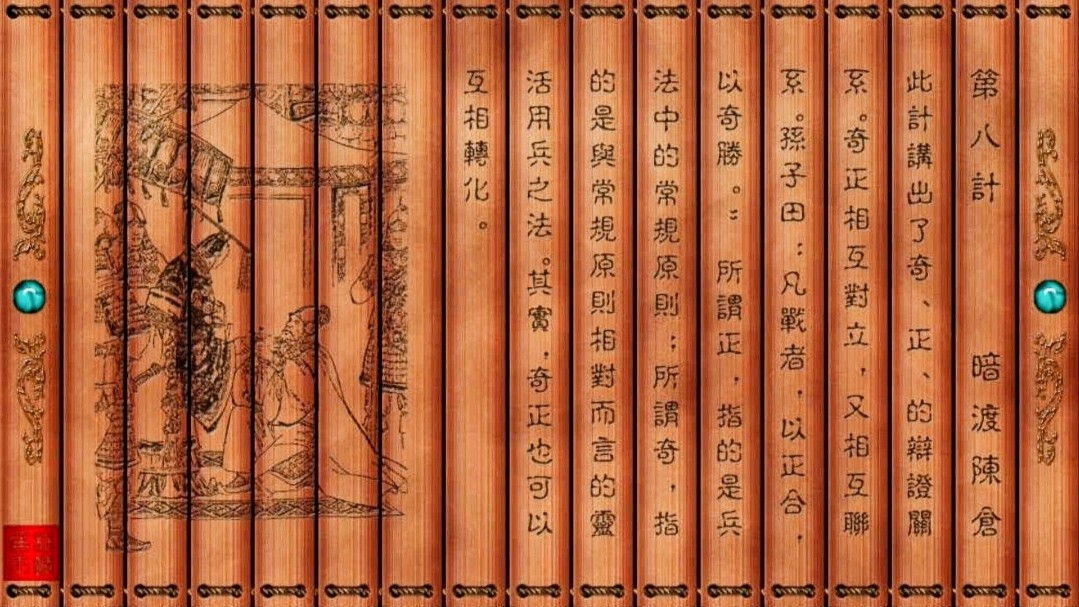 第八計 暗渡陳倉
此計講出了奇、正、的辯證關
系。奇正相互對立，又相互聯
系。孫子田：凡戰者，以正合，
以奇勝。：所謂正，指的是兵
法中的常規原則；所謂奇，指
的是與常規原則相對而言的靈
活用兵之法。其實，奇正也可以
互相轉化。